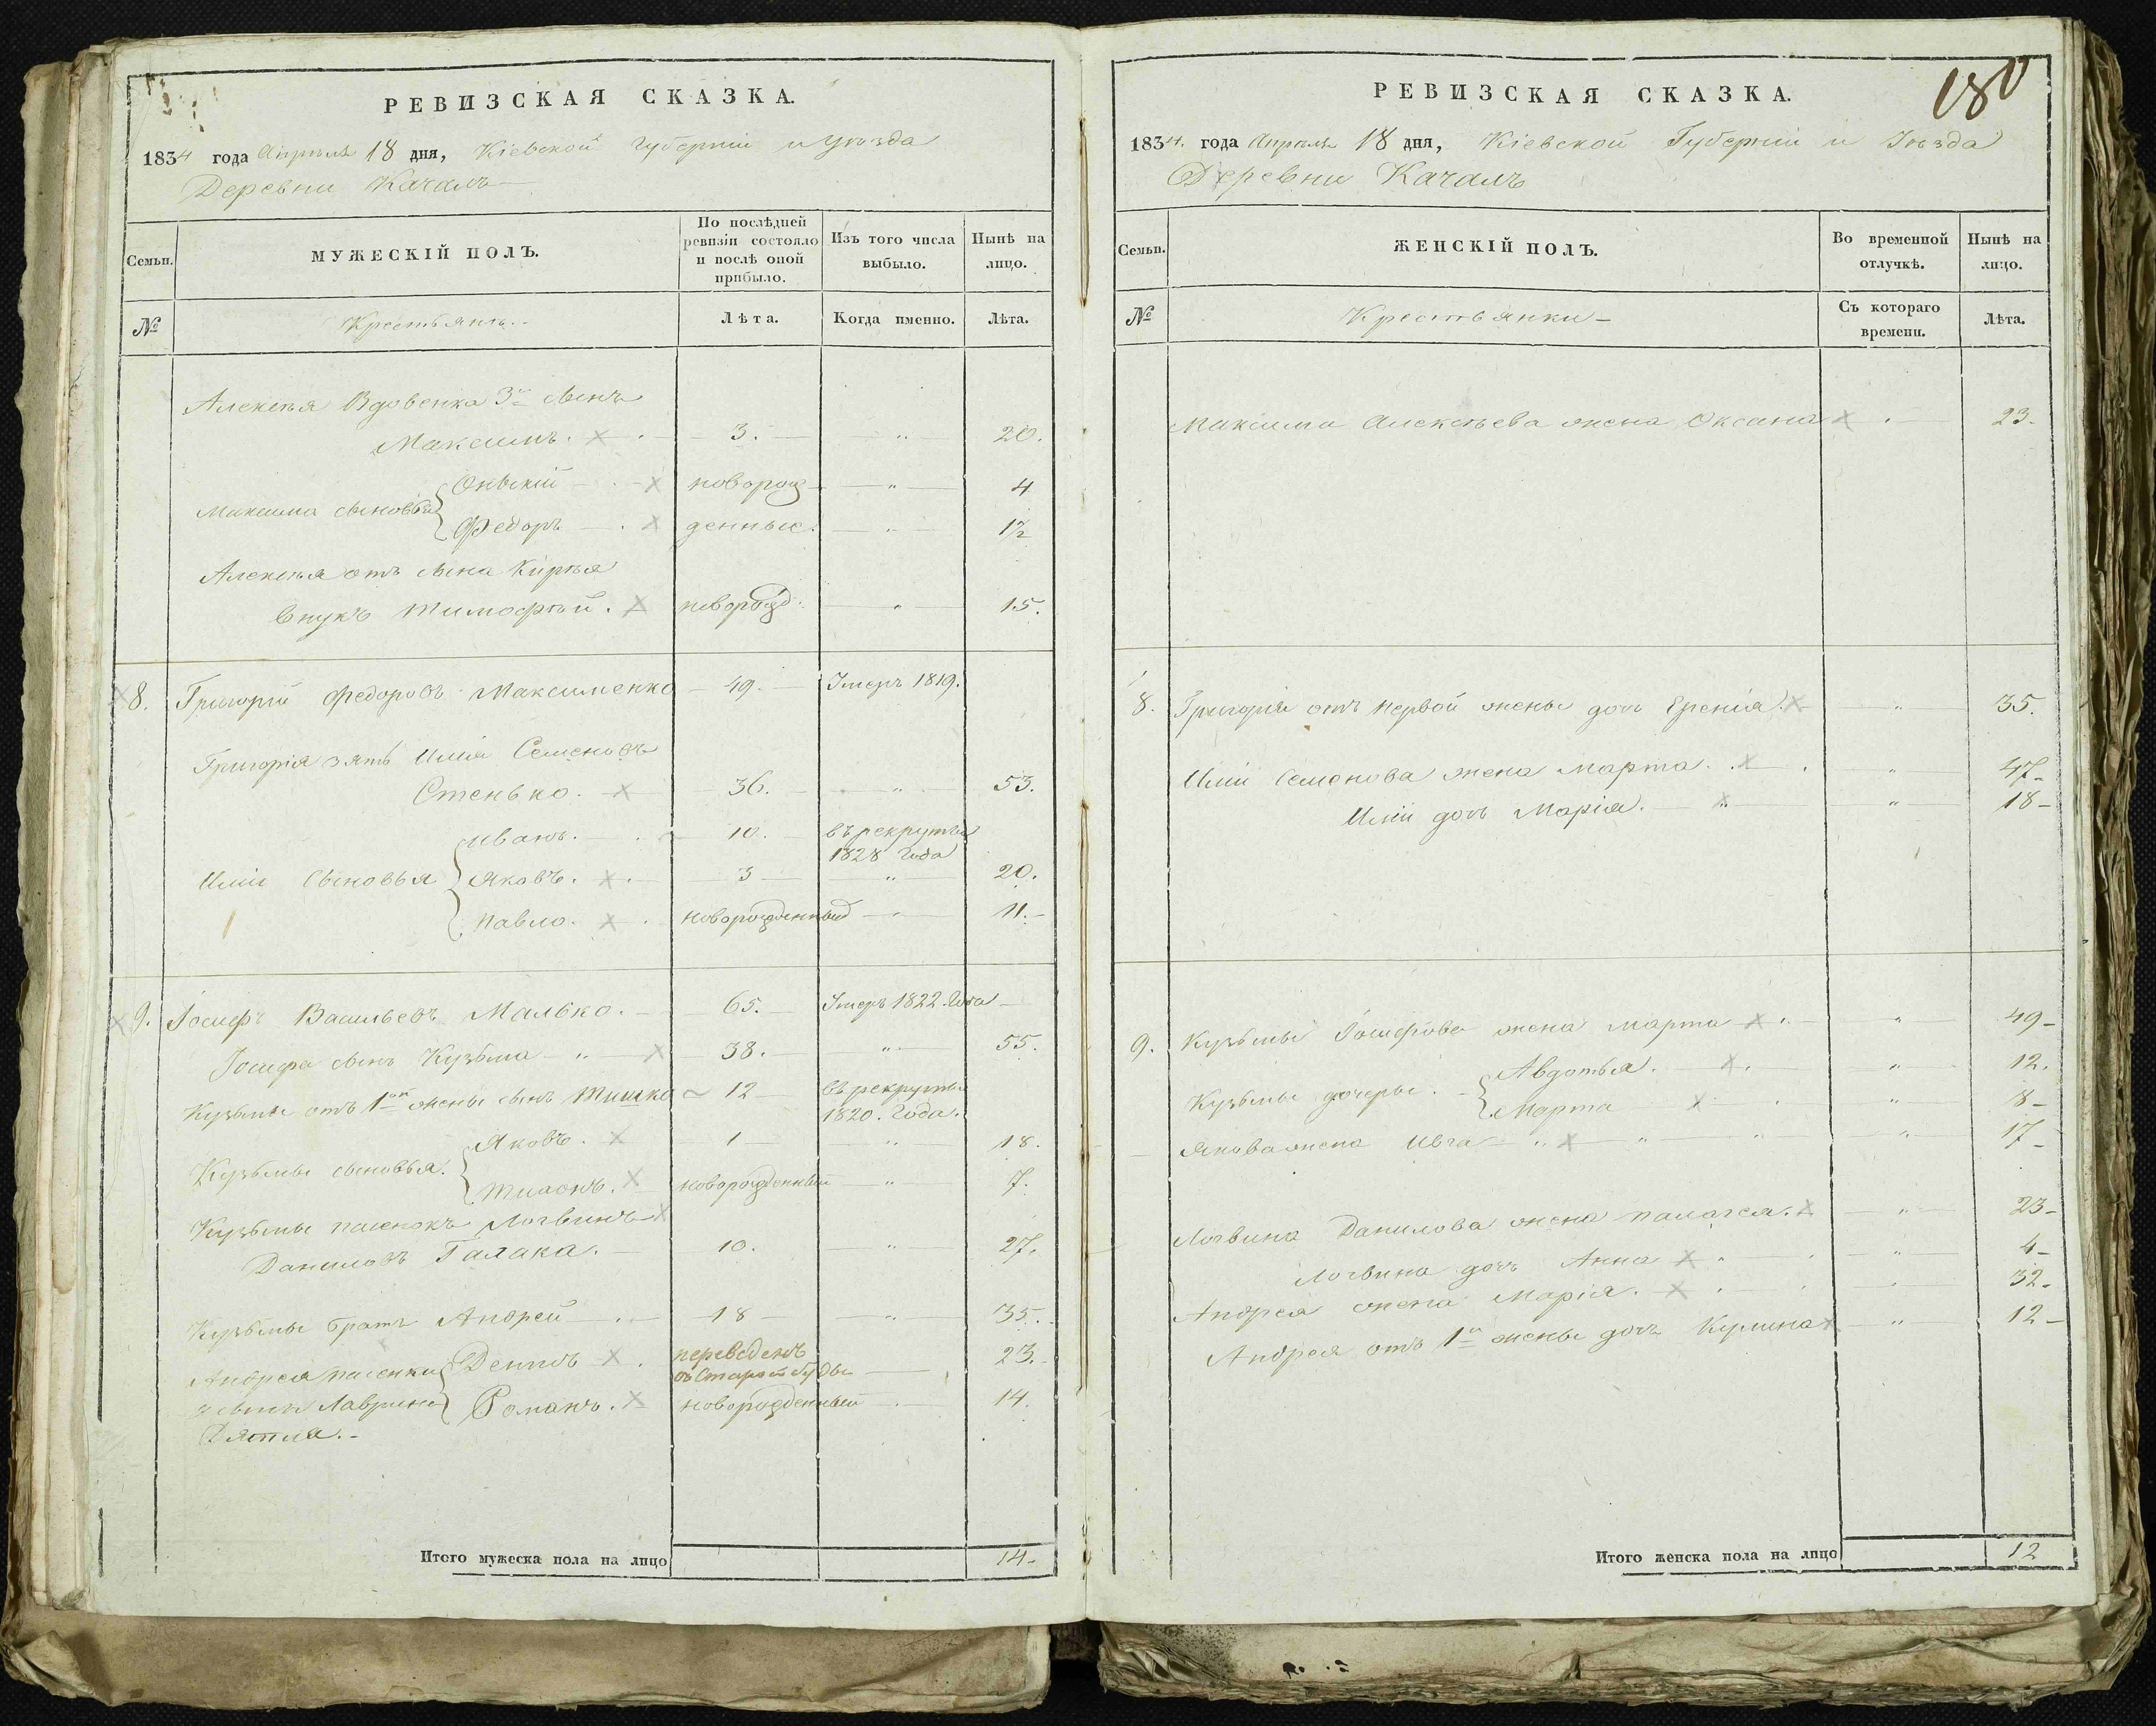 РЕВИЗСКАЯ СКАЗКА.
1834 года Апрѣля 18 дня, Кіевской Губерніи и уѣзда
Деревни Качалъ
Семьи.
МУЖЕСКІЙ ПОЛЪ.
По послѣдней ревизіи состояло и послѣ оной прибыло.
Изъ того числа выбыло.
Нынѣ на лицо.
№
Крестьяне.
Лѣта.
Когда именно.
Лѣта.
Алексѣя Вдовенка 3й сынъ
Максимъ. 3. " 20.
Максима сыновья
новорож " 4
Федоръ денные. " 1½
Алексѣя отъ сына Кирѣя
внукъ Тимофѣй. новорожд: " 15.
8. Григорій Федоровъ Максименко 49. Умеръ 1819.
Григорія зять Илія Семеновъ
Стенько. 36. " 53.
Иванъ. 10. въ рекруты
1828 года
Иліи Сыновья Яковъ. 3 " 20.
Павло. новорожденный " 11.
9. Іосифъ Васильевъ Малько. 65. Умеръ 1822. года
Іосифа сынъ Кузьма " 38. " 55.
Кузьмы отъ 1ой жены сынъ Тишко 12 въ рекруты
1820. Года.
Яковъ. 1 " 18.
Кузьмы сыновья.
новорожденный " 7.
Кузьмы пасенокъ Логвинъ
Даниловъ Галака. 10. " 27.
Кузьмы братъ Андрей 18 " 35.
Андрея пасенки Денисъ переведенъ 23.
Лаврина Романъ. новорожденный 14.
Итого мужеска пола на лицо 14
180
РЕВИЗСКАЯ СКАЗКА.
1834. года Апрѣля 18 дня, Кіевской Губерніи и Уѣзда
Деревни Качалъ
Семьи.
ЖЕНСКІЙ ПОЛЪ.
Во временной отлучкѣ.
Нынѣ на лицо.
№
Крестьянки
Съ котораго времени.
Лѣта.
Максима Алексѣева жена Оксана 23.
8. Григорія отъ первой жены дочь Еренія. " 35.
Иліи Семенова жена Марта. " 47
Иліи дочь Марія. " 18
9. Кузьмы Іосифова жена Марта " 49
Авдотья. " 12.
Кузьмы дочери.
Марта " 8
Якова жена Ивга " " " " 17
Логвина Данилова жена Палагея. " 23
Логвина дочь Анна " " 4
Андрея жена Марія. " 32
Андрея отъ 1й жены дочь Кулина " 12
Итого женска пола на лицо 12